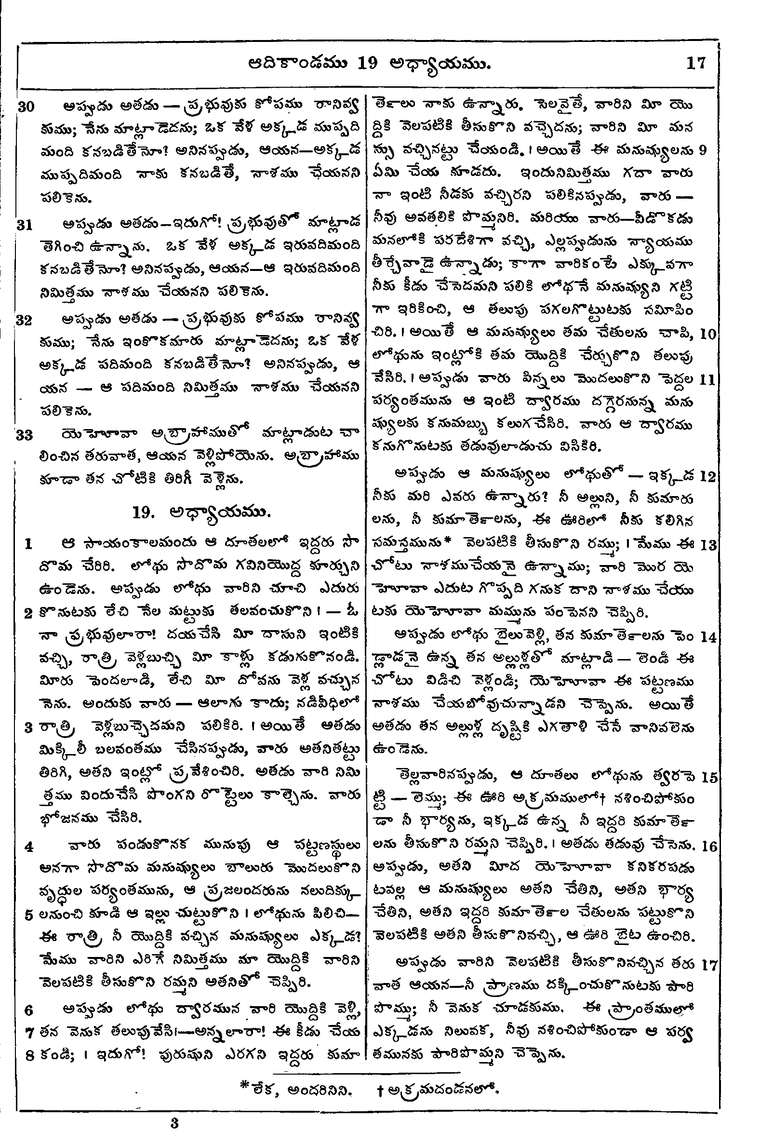 ఆదికాండము 19 అధ్యాయము. 17
30 అప్పుడు అతడు — ప్రభువుకు కోపము రానివ్వ
కుము; నేను మాట్లాడెదను; ఒక వేళ అక్కడ ముప్పది
మంది కనబడితేనో? అనినప్పుడు, ఆయన—అక్కడ
ముప్పదిమంది నాకు కనబడితే, నాశము చేయనని
పలికెను.
31 అప్పుడు అతడు—ఇదుగో! ప్రభువుతో మాట్లాడ
తెగించి ఉన్నాను. ఒక వేళ అక్కడ ఇరువదిమంది
కనబడితేనో? అనినప్పుడు, ఆయన—ఆ ఇరువదిమంది
నిమిత్తము నాశము చేయనని పలికెను.
32 అప్పుడు అతడు — ప్రభువుకు కోపము రానివ్వ
కుము; నేను ఇంకొకమారు మాట్లాడెదను; ఒక వేళ
అక్కడ పదిమంది కనబడితేనో? అనినప్పుడు, ఆ
యన — ఆ పదిమంది నిమిత్తము నాశము చేయనని
పలికెను.
33 యెహోవా అబ్రాహాముతో మాట్లాడుట చా
లించిన తరువాత, ఆయన వెళ్లిపోయెను. అబ్రాహాము
కూడా తన చోటికి తిరిగీ వెళ్లెను.
19. అధ్యాయము.
1 ఆ సాయంకాలమందు ఆ దూతలలో ఇద్దరు సొ
దొమ చేరిరి. లోథు సొదొమ గవినియొద్ద కూర్చుని
ఉండెను. అప్పుడు లోథు వారిని చూచి ఎదురు
2 కొనుటకు లేచి నేల మట్టుకు తలవంచుకొని । — ఓ
నా ప్రభువులారా! దయచేసి మీ దాసుని ఇంటికి
వచ్చి, రాత్రి వెళ్లబుచ్చి మీ కాళ్లు కడుగుకొనండి.
మీరు పెందలాడి, లేచి మీ దోవను వెళ్ల వచ్చున
నెను. అందుకు వారు — ఆలాగు కాదు; నడివీధిలో
3 రాత్రి వెళ్లబుచ్చెదమని పలికిరి. । అయితే అతడు
మిక్కిలీ బలవంతము చేసినప్పుడు, వారు అతనితట్టు
తిరిగి, అతని ఇంట్లో ప్రవేశించిరి. అతడు వారి నిమి
త్తము విందుచేసి పొంగని రొట్టెలు కాల్చెను. వారు
భోజనము చేసిరి.
4 వారు పండుకొనక మునుపు ఆ పట్టణస్థులు
అనగా సొదొమ మనుష్యులు బాలురు మొదలుకొని
వృద్ధుల పర్యంతమును, ఆ ప్రజలందరును నలుదిక్కు
5 లనుంచి కూడి ఆ ఇల్లు చుట్టుకొని । లోథును పిలిచి—
ఈ రాత్రి నీ యొద్దికి వచ్చిన మనుష్యులు ఎక్కడ?
మేము వారిని ఎరిగే నిమిత్తము మా యొద్దికి వారిని
వెలపటికి తీసుకొని రమ్మని అతనితో చెప్పిరి.
6 అప్పుడు లోథు ద్వారమున వారి యొద్దికి వెళ్లి,
7 తన వెనుక తలుపువేసి।—అన్నలారా! ఈ కీడు చేయ
8 కండి; । ఇదుగో! పురుషుని ఎరగని ఇద్దరు కుమా
ర్తెలు నాకు ఉన్నారు. సెలవైతే, వారిని మీ యొ
ద్దికి వెలపటికి తీసుకొని వచ్చెదను; వారిని మీ మన
స్సు వచ్చినట్టు చేయండి. । అయితే ఈ మనుష్యులను 9
ఏమి చేయ కూడదు. ఇందునిమిత్తము గదా వారు
నా ఇంటి నీడకు వచ్చిరని పలికినప్పుడు, వారు —
నీవు అవతలికి పొమ్మనిరి. మరియు వారు—వీడొకడు
మనలోకి పరదేశిగా వచ్చి, ఎల్లప్పుడును న్యాయము
తీర్చేవాడై ఉన్నాడు; కాగా వారికంటే ఎక్కువగా
నీకు కీడు చేసెదమని పలికి లోథనే మనుష్యుని గట్టి
గా ఇరికించి, ఆ తలుపు పగలగొట్టుటకు సమీపిం
చిరి. । అయితే ఆ మనుష్యులు తమ చేతులను చాపి, 10
లోథును ఇంట్లోకి తమ యొద్దికి చేర్చుకొని తలుపు
వేసిరి. । అప్పుడు వారు పిన్నలు మొదలుకొని పెద్దల 11
పర్యంతమును ఆ ఇంటి ద్వారము దగ్గెరనున్న మను
ష్యులకు కనుమబ్బు కలుగచేసిరి. వారు ఆ ద్వారము
కనుగొనుటకు తడువులాడుచు విసికిరి.
అప్పుడు ఆ మనుష్యులు లోథుతో — ఇక్కడ 12
నీకు మరి ఎవరు ఉన్నారు? నీ అల్లుని, నీ కుమారు
లను, నీ కుమార్తెలను, ఈ ఊరిలో నీకు కలిగిన
సమస్తమును* వెలపటికి తీసుకొని రమ్ము; । మేము ఈ 13
చోటు నాశముచేయనై ఉన్నాము; వారి మొర యె
హోవా ఎదుట గొప్పది గనుక దాని నాశము చేయు
టకు యెహోవా మమ్మును పంపెనని చెప్పిరి.
అప్పుడు లోథు బైలువెళ్లి, తన కుమార్తెలను పెం 14
డ్లాడనై ఉన్న తన అల్లుళ్లతో మాట్లాడి — లెండి ఈ
చోటు విడిచి వెళ్లండి; యెహోవా ఈ పట్టణము
నాశము చేయబోవుచున్నాడని చెప్పెను. అయితే
అతడు తన అల్లుళ్ల దృష్టికి ఎగతాళి చేసే వానివలెను
ఉండెను.
తెల్లవారినప్పుడు, ఆ దూతలు లోథును త్వరపె 15
ట్టి — లెమ్ము; ఈ ఊరి అక్రమములో† నశించిపోకుం
డా నీ భార్యను, ఇక్కడ ఉన్న నీ ఇద్దరి కుమార్తె
లను తీసుకొని రమ్మని చెప్పిరి. । అతడు తడువు చేసెను. 16
అప్పుడు, అతని మీద యెహోవా కనికరపడు
టవల్ల ఆ మనుష్యులు అతని చేతిని, అతని భార్య
చేతిని, అతని ఇద్దరి కుమార్తెల చేతులను పట్టుకొని
వెలపటికి అతని తీసుకొనివచ్చి, ఆ ఊరి బైట ఉంచిరి.
అప్పుడు వారిని వెలపటికి తీసుకొనివచ్చిన తరు 17
వాత ఆయన—నీ ప్రాణము దక్కించుకొనుటకు పారి
పొమ్ము; నీ వెనుక చూడకుము. ఈ ప్రాంతములో
ఎక్కడను నిలువక, నీవు నశించిపోకుండా ఆ పర్వ
తమునకు పారిపొమ్మని చెప్పెను.
*లేక, అందరినిని. †అక్రమదండనలో.
3